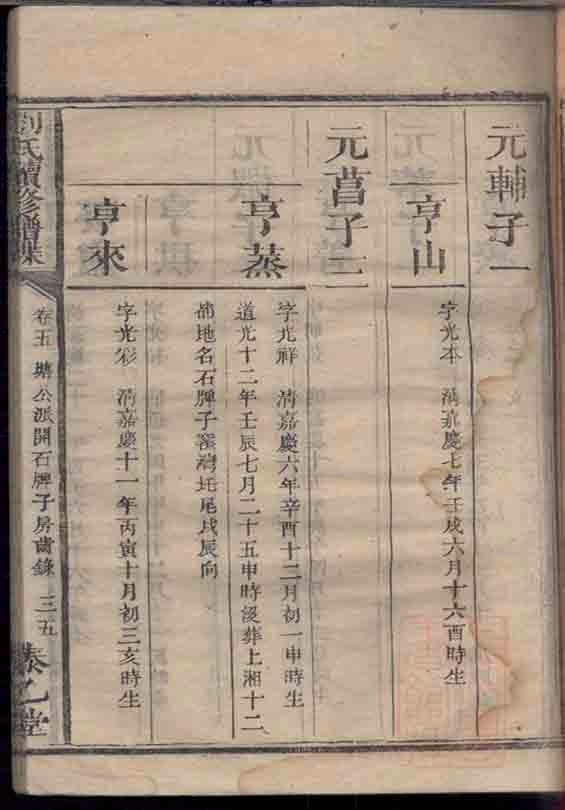 元輔子一
亨山
字光本 清嘉慶七年壬戌六月十六酉時生
元菖子二
亨蒸
字光祥 清嘉慶六年辛酉十二月初一申時生
道光十二年壬辰七月二十五申時歿葬上湘十二
都地名石牌子灣圫尾戌辰向
亨來
字光彩 清嘉慶十一年丙寅十月初三亥時生
劉氏續修譜牒
卷五 公派開石牌子房齒錄 三五
乙堂